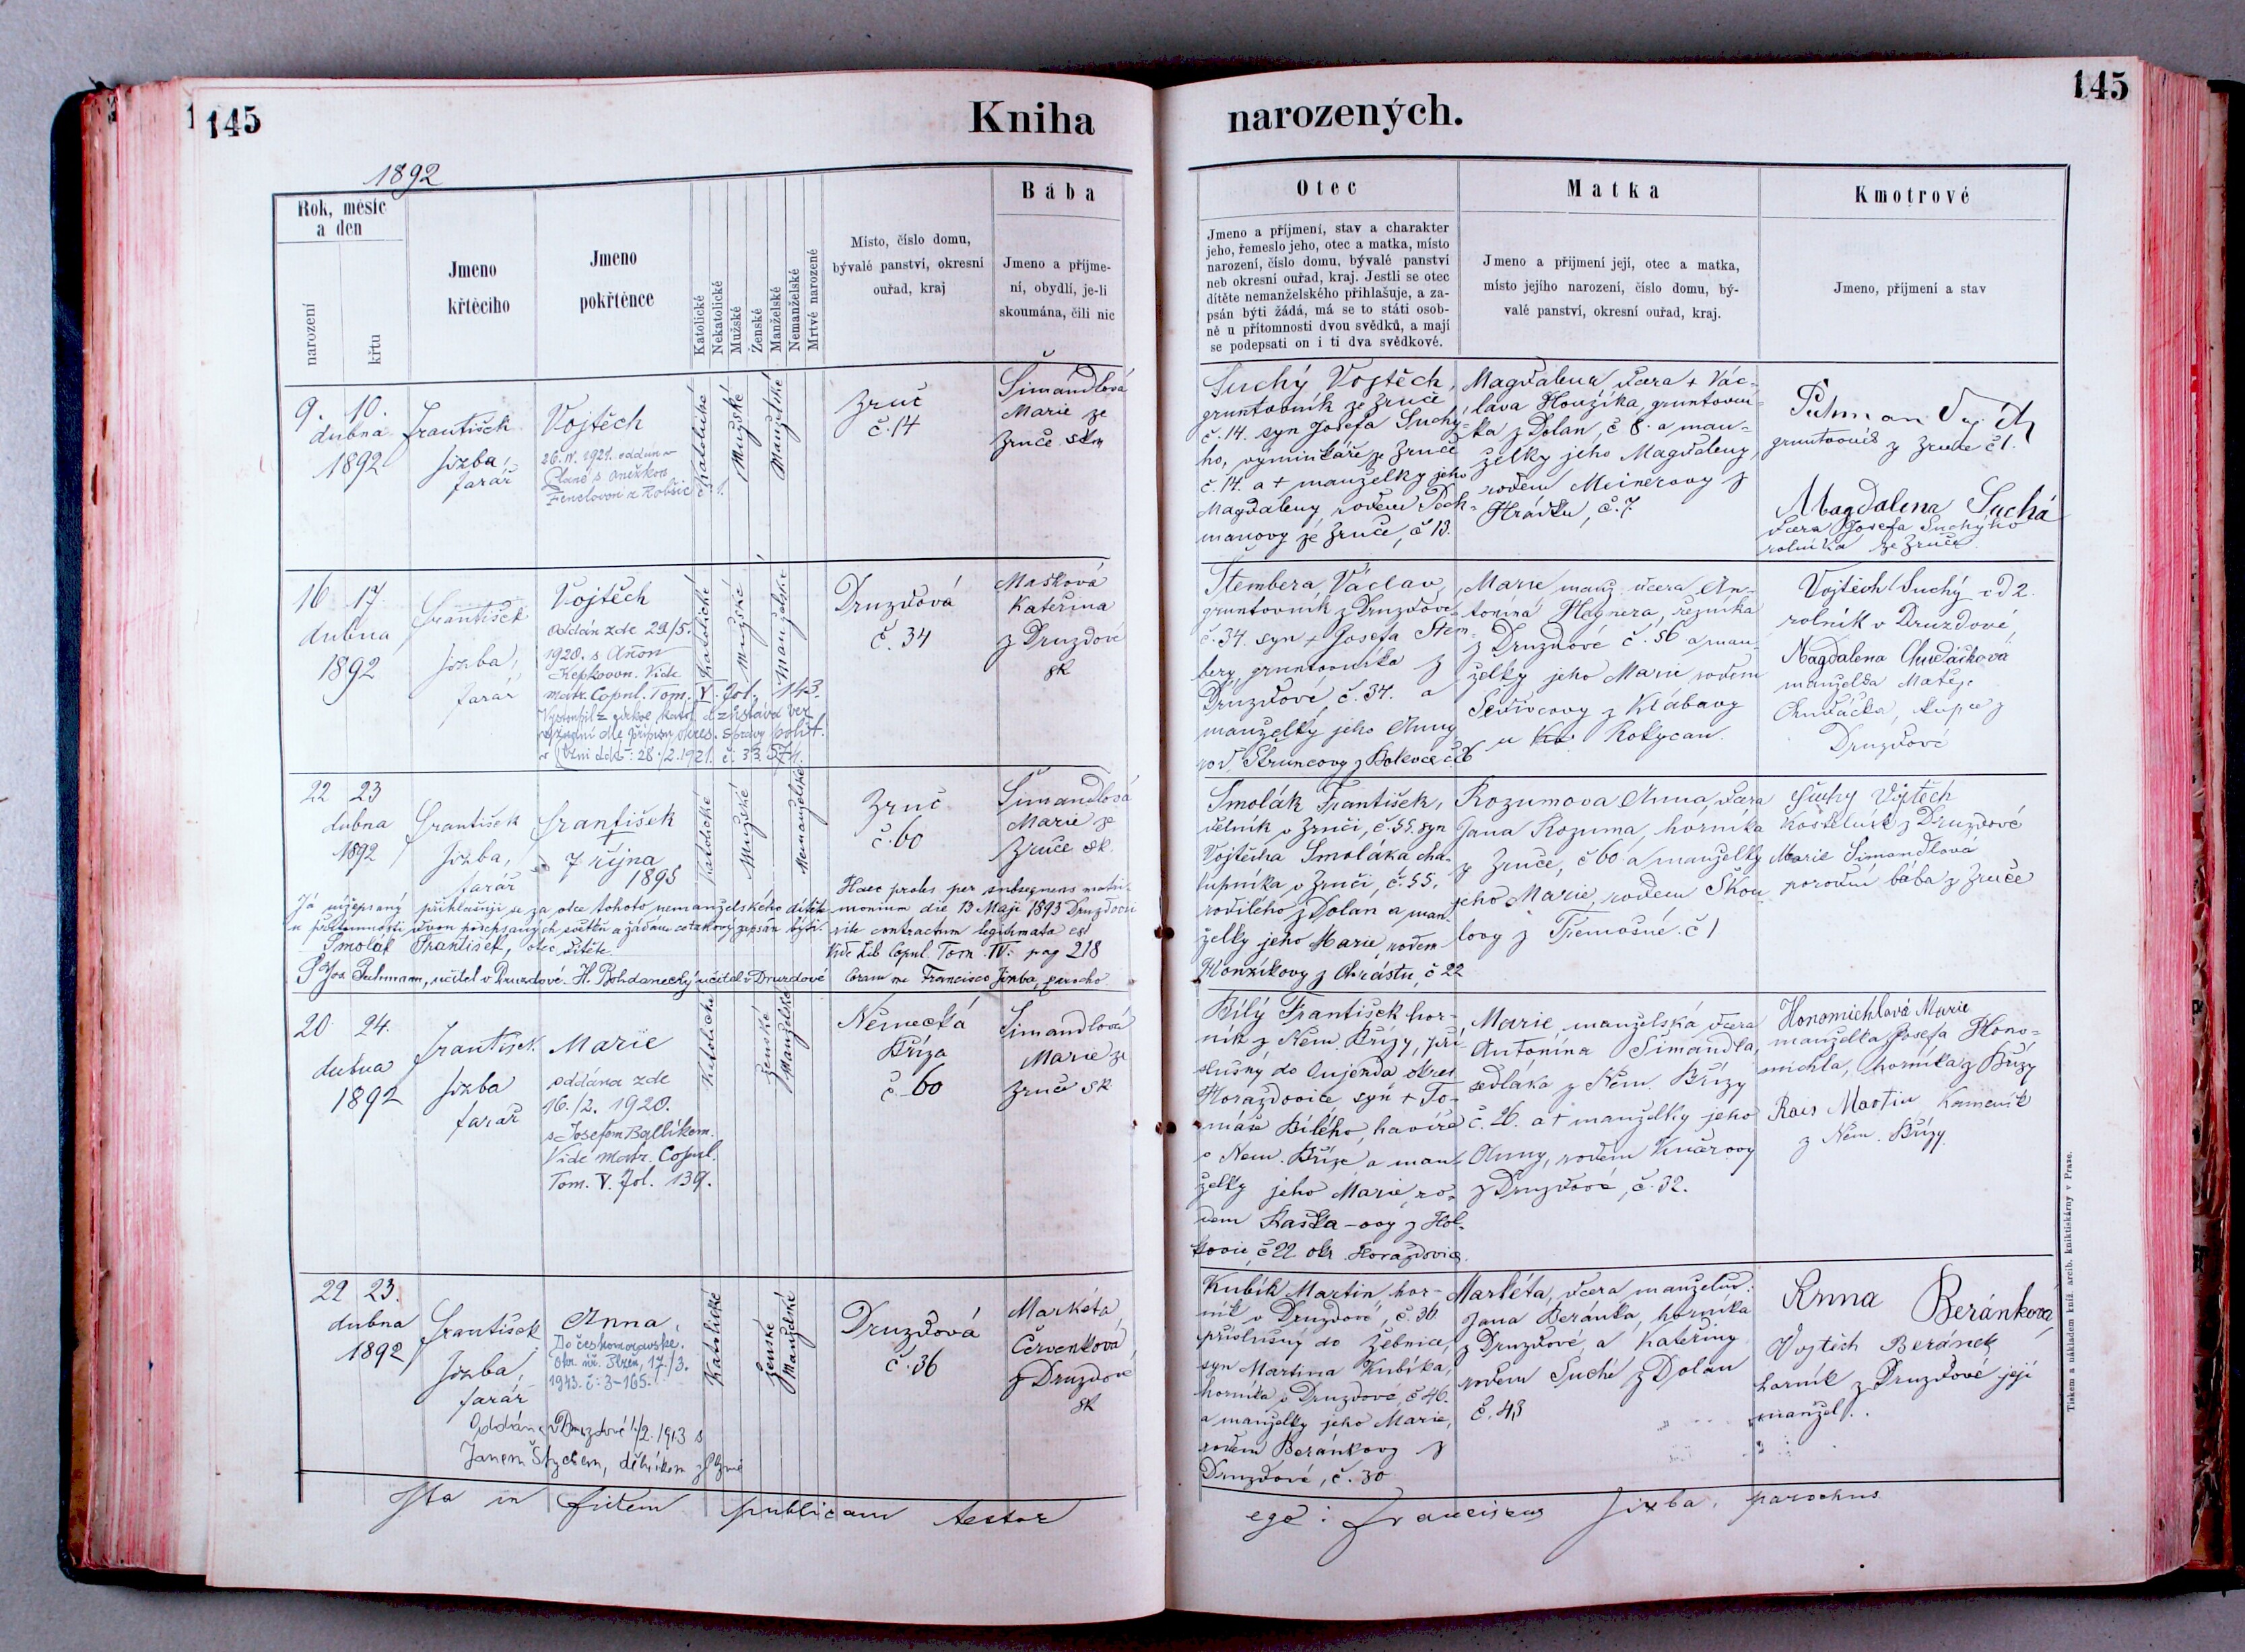 145
Kniha
narozených.
145
1892
Rok, měsíc
a den
narození
křtu
Jmeno
křtěcího
Jmeno
pokřtěnce
Katolické
Nekatolické
Mužské
Ženské
Manželské
Nemanželské
Mrtvé narozené
Místo, číslo domu,
bývalé panství, okresní
ouřad, kraj
Bába
Jmeno a příjme-
ní, obydlí, je-li
skoumána, čili nic
Otec
Jmeno a příjmení, stav a charakter
jeho, řemeslo jeho, otec a matka, místo
narození, číslo domu, bývalé panství
neb okresní ouřad, kraj. Jestli se otec
dítěte nemanželského přihlašuje, a za-
psán býti žádá, má se to státi osob-
ně u přítomnosti dvou svědků, a mají
se podepsati on i ti dva svědkové.
Matka
Jmeno a příjmení její, otec a matka,
místo jejího narození, číslo domu, bý-
valé panství, okresní ouřad, kraj.
Kmotrové
Jmeno, příjmení a stav
9. 10.
dubna
1892
František
Jizba,
farář
Vojtěch
26. IV. 1921. oddán v
Plané s Anežkou
Fenclovou z Robčic č. 1.
Katolické
Mužské
Manželské
Zruč
č. 14
Šimandlová
Marie ze
Zruče sk
Suchý Vojtěch,
gruntovník ze Zruče
č. 14. syn Josefa Suché-
ho, výminkáře ze Zruče
č. 14. a + manželky jeho
Magdaleny rodem Poch-
manovy ze Zruče, č 13.
Magdalena dcera + Vác-
lava Houzíka, gruntovní-
ka z Dolan, č 8. a man-
želky jeho Magdaleny,
rodem Meinerovy z
Hrádku, č. 7
gruntovník ze Zruče č 1.
Magdalena Suchá
dcera Josefa Suchýho
rolníka ze Zruče.
16 17.
dubna
1892
František
Jizba,
farář
Vojtěch
Oddán zde 29/5.
1920. s Annou
Vide
Matr. Copul. Tom. V. Fol. 143.
28./2. 1921.
Katolické
Mužské
Manželské
Druzdová
č. 34
Mašková
Kateřina
z Druzdové
sk
Štembera Václav,
gruntovník z Druzdové
č. 34. syn + Josefa Štem-
bery, gruntovníka z
Druzdové, č. 34. a
manželky jeho Anny
rod. Struncovy z Bolevce č. 26
Marie manž. dcera An-
tonína Hagnera, řezníka
z Druzdové č. 56 a man-
želky jeho Marie rodem
z Klabavy
u Rokycan.
Vojtěch Suchý č 2.
rolník v Druzdové
Magdalena Chudáčková
manželka Matěje
Chudáčka, kupce z
Druzdové
22 23
dubna
1892
František
Jizba,
farář
František
+
7 října
1895
Katolické
Mužské
Nemanželské
Zruč
č. 60
Šimandlová
Marie ze
Zruče sk.
Smolák František,
dělník v Zruči, č. 55. syn
Vojtěcha Smoláka cha-
lupníka v Zruči, č. 55.
rodilého z Dolan a man-
želky jeho Marie, rodem
Honzíkovy z Chrástu, č 22
Rozumova Anna, dcera
Jana Rozuma, horníka
z Zruče, č 60 a manželky
jeho Marie, rodem Skou-
lovy z Třemošné. č 1
Suchy Vojtěch
Kostelník z Druzdové
Marie Šimandlová
porodní bába z Zruče
Já nížepsaný přihlašuji se za otce tohoto nemanželského dítěte
u přítomnosti dvou podepsaných svědků a žádám co takový zapsán býti.
Smolák František, otec dítěte.
Jos. Puhmann, učitel v Druzdové. H. Bohdanecký učitel v Druzdové
Haec proles per subsequens matri-
monium die 13 Maji 1893 Druzdovii
rite contractum legitimata est
Vide Lib Copul. Tom. IV. pag 218
Coram me Francisco Jizba, parocho
20 24.
dubna
1892
František
Jizba
farář
Marie
oddána zde
16./2. 1920.
s Josefem Ballíkem.
Vide Matr. Copul.
Tom. V. Fol. 139.
Katolické
Ženské
Manželské
Německá
Bříza
č. 60
Šimandlová
Marie ze
Zruče sk
Bílý František hor-
ník z Něm. Břízy, pří-
slušný do okres
Horažďovice syn + To-
máše Bílého, havíře
v Něm. Bříze a man-
želky jeho Marie, ro-
dem Kaška-ovy z Hol-
kovic, č 22. okr. Horažďovice.
Marie manželská dcera
Antonína Šimandla,
sedláka z Něm. Břízy
č. 26. a + manželky jeho
Anny, rodem
z Druzdové, č. 32.
Honomichlová Marie
manželka Josefa Hono-
michla, horníka z Břízy
Rais Martin Kameník
z Něm. Břízy.
22 23.
dubna
1892
František
Jizba,
farář
Anna,
Do českomoravské.
Okr. úř. Plzeň, 17./3.
1943. č: 3-165.
Oddána v Druzdové 1/2. 1913 s
Janem Štychem, dělníkem z Plzně
Katolické
Ženské
Manželské
Druzdová
č. 36
Markéta
Červenková
z Druzdové
sk
Kubík Martin, hor-
ník v Druzdové, č. 36
příslušný do Žebnice,
syn Martina Kubíka,
horníka v Druzdové, č 46.
a manželky jeho Marie,
rodem Beránkovy z
Druzdové, č. 30
Markéta, dcera manželů:
Jana Beránka, horníka
z Druzdové, a Kateřiny
rodem Suché z Dolan
č. 43
Anna Beránková,
Vojtěch Beránek
horník z Druzdové její
manžel.
Ita in fidem publicam testor
ego: Franciscus Jizba, parochus
Tiskem a nákladem kníž. arcib. knihtiskárny v Praze.